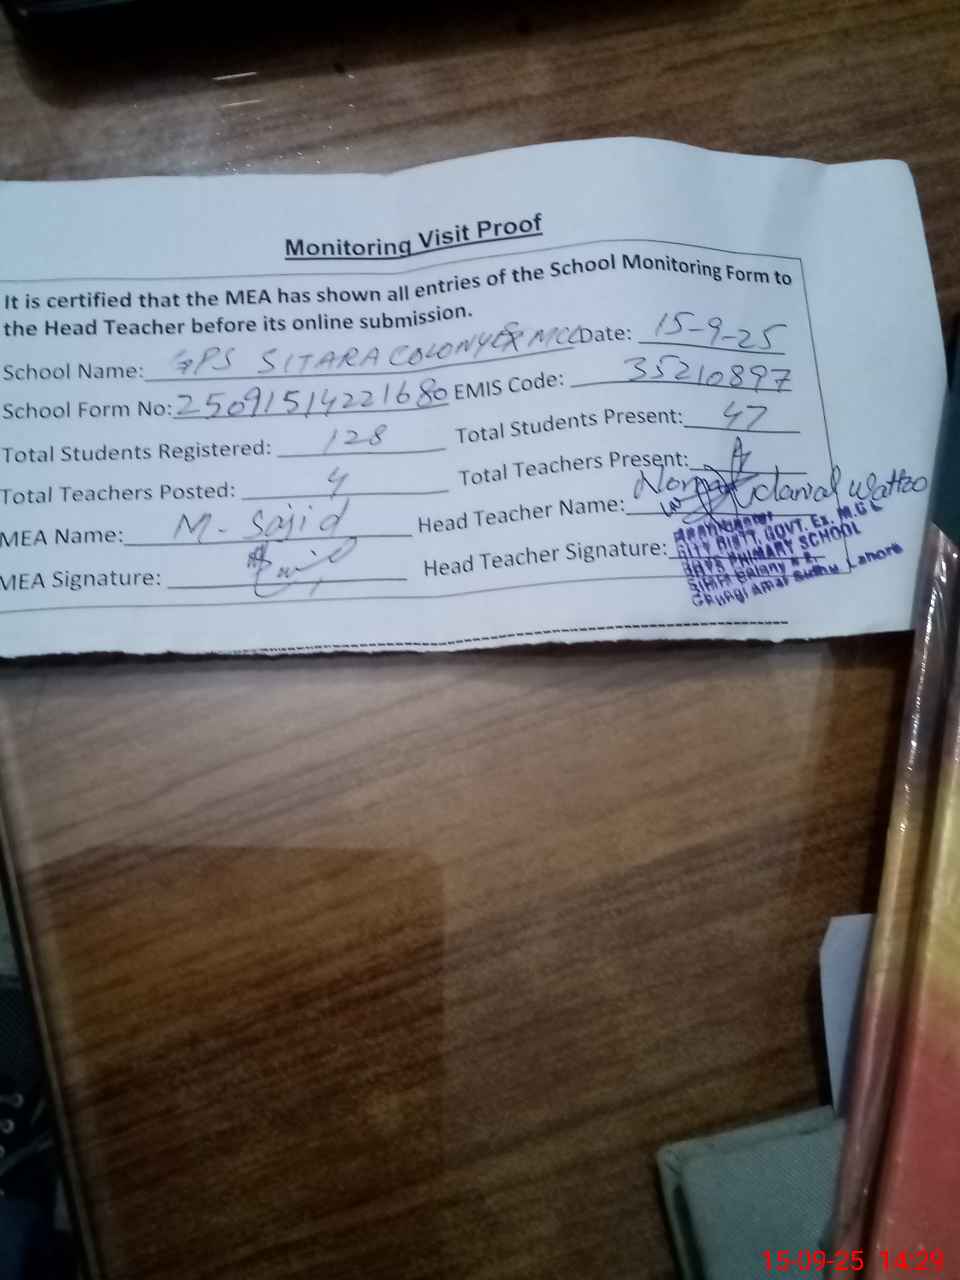 Monitoring Visit Proof
It is certified that the MEA has shown all entries of the School Monitoring Form to
the Head Teacher before its online submission.
School Name: GPS SITARA COLONY EX MCL Date: 15-9-25
School Form No: 25091514221680 EMIS Code: 35210897
Total Students Registered: 128 Total Students Present: 47
Total Teachers Posted: 4 Total Teachers Present:
MEA Name: M. Sajid Head Teacher Name: Wattoo
MEA Signature: Head Teacher Signature:
CITY DISTT. GOVT. Ex. M.C.L
BOYS PRIMARY SCHOOL
Lahore
15-09-25 14:29